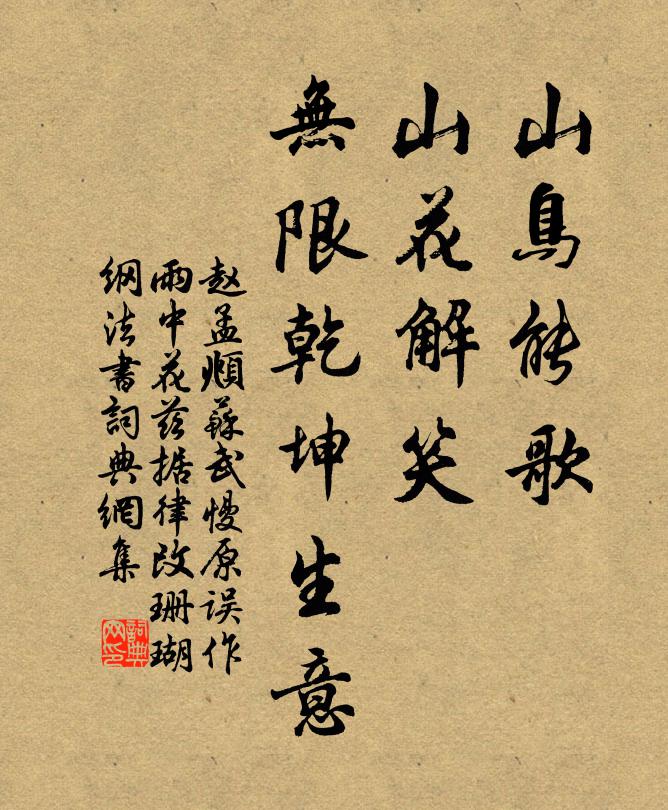 山鳥能歌
山花解笑
無限乾坤生意
赵孟頫蘇武慢原误作
雨中花茲据律改珊瑚
網法書詞典網集
詞典網印